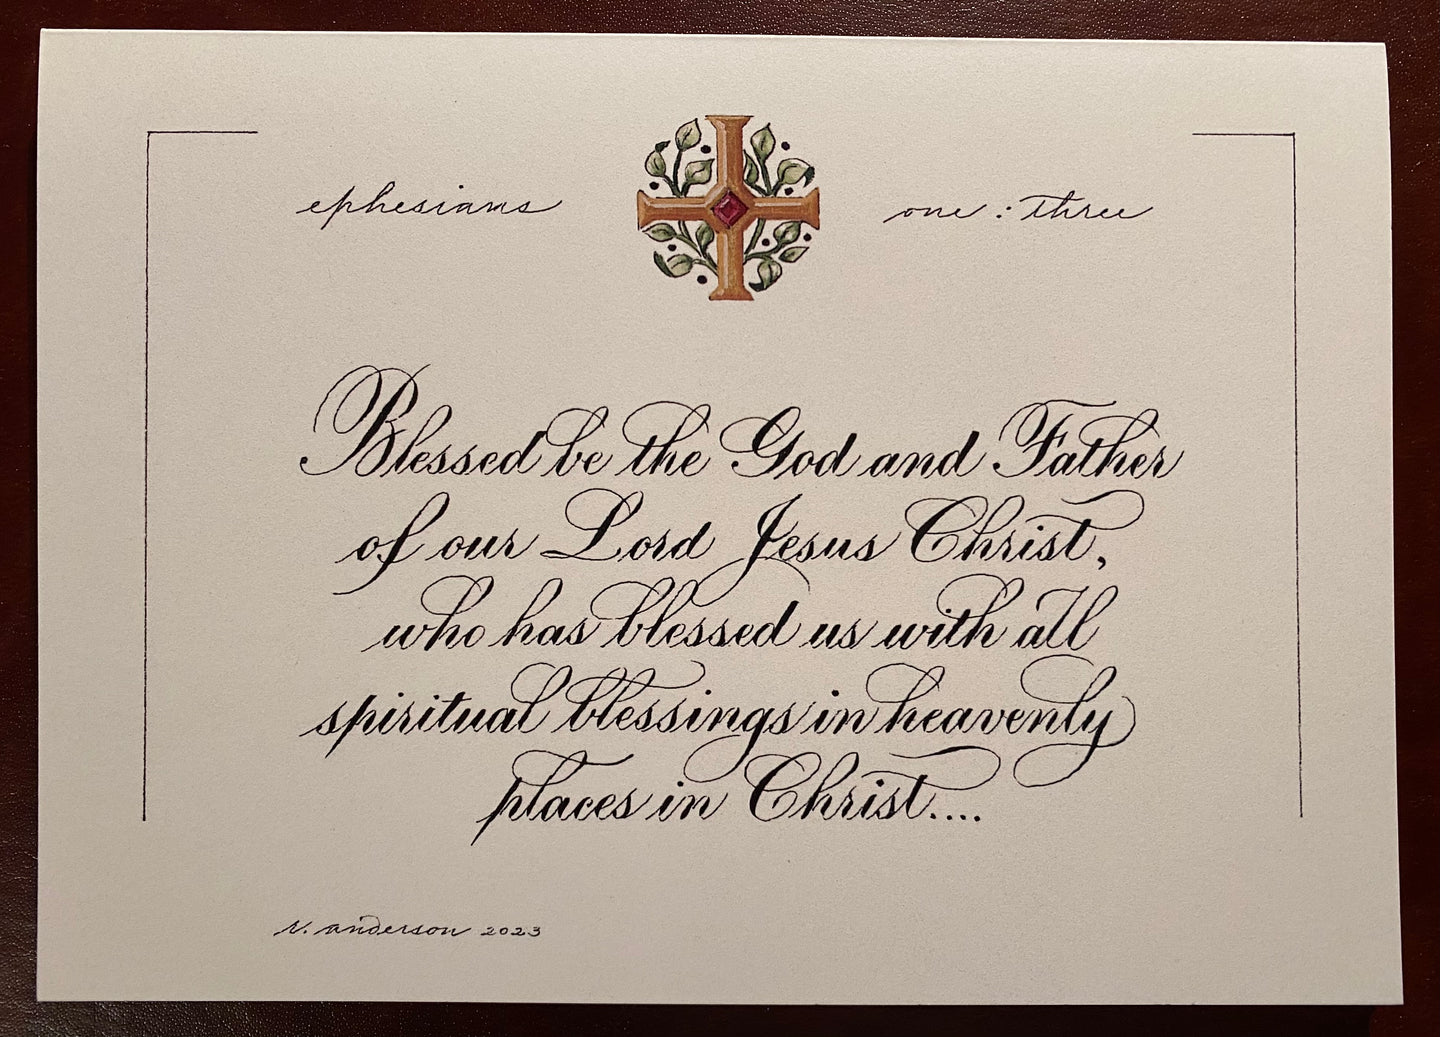 ephesians one : three
Blessed be the God and Father
of our Lord Jesus Christ,
who has blessed us with all
spiritual blessings in heavenly
places in Christ....
r. anderson 2023